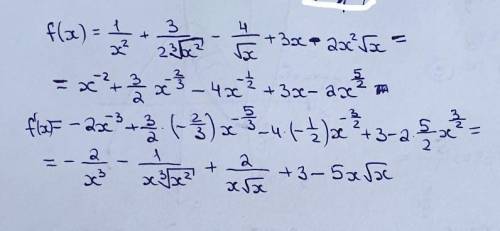 f(x) = 1/x² + 3/(2∛x²) - 4/√x + 3x - 2x²√x =
= x⁻² + 3/2 x^(-2/3) - 4x^(-1/2) + 3x - 2x^(5/2)
f'(x) = -2x⁻³ + 3/2 · (-2/3) x^(-5/3) - 4 · (-1/2) x^(-3/2) + 3 - 2 · 5/2 x^(3/2) =
= - 2/x³ - 1/(x∛x²) + 2/(x√x) + 3 - 5x√x